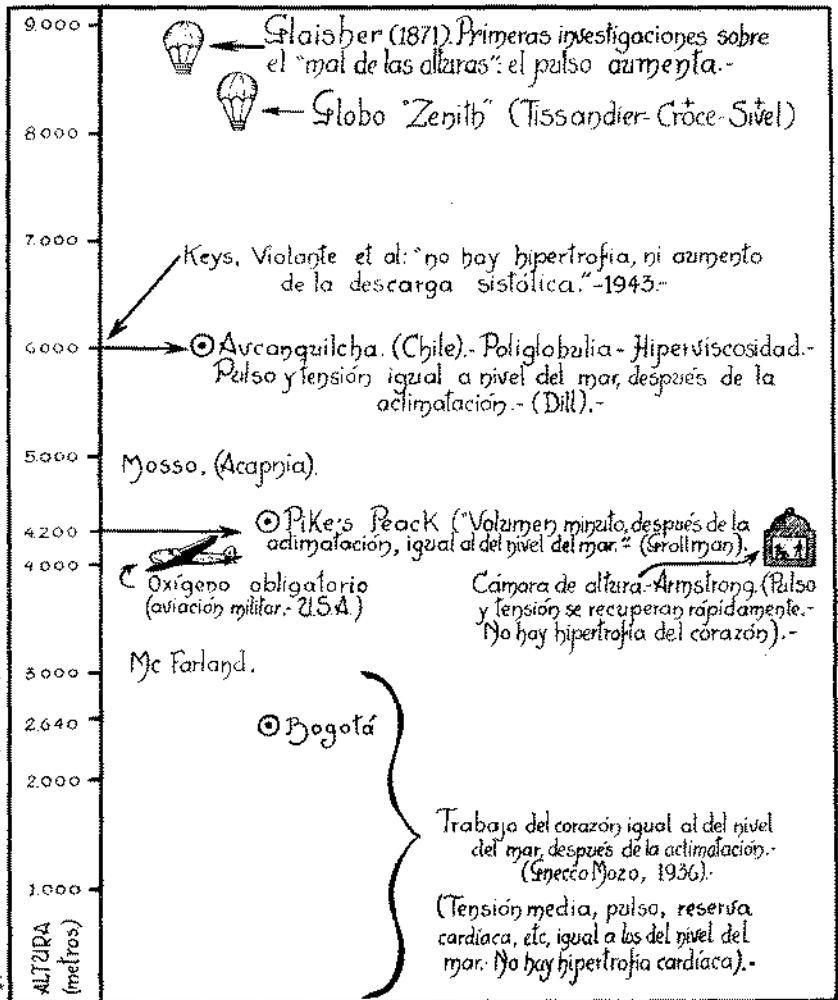 9.000
Glaisher (1871). Primeras investigaciones sobre
el "mal de las alturas": el pulso aumenta.-
Globo "Zenith" (Tissandier-Croce-Sivel)
8000
7.000
Keys, Violante et al: "no hay hipertrofia, ni aumento
de la descarga sistólica."-1943.-
6000
Aucanquilcha. (Chile).- Poliglobulia- Hiperviscosidad.-
Pulso y tensión igual a nivel del mar, después de la
aclimatación.- (Dill).-
5.000
Mosso. (Acapnia).
4.200
Pike's Peack ("Volumen minuto, después de la
aclimatación, igual al del nivel del mar." (Grollman).
4000
Oxígeno obligatorio
(aviación militar.- U.S.A.)
Cámara de altura.-Armstrong. (Pulso
y tensión se recuperan rápidamente.-
No hay hipertrofia del corazón).-
Mc Farland.
3000
2.640
Bogotá
2.000
Trabajo del corazón igual al del nivel
del mar, después de la aclimatación.-
(Gnecco Mozo, 1936).-
1.000
(Tensión media, pulso, reserva
cardíaca, etc, igual a los del nivel del
mar.- No hay hipertrofia cardíaca).-
ALTURA
(metros)